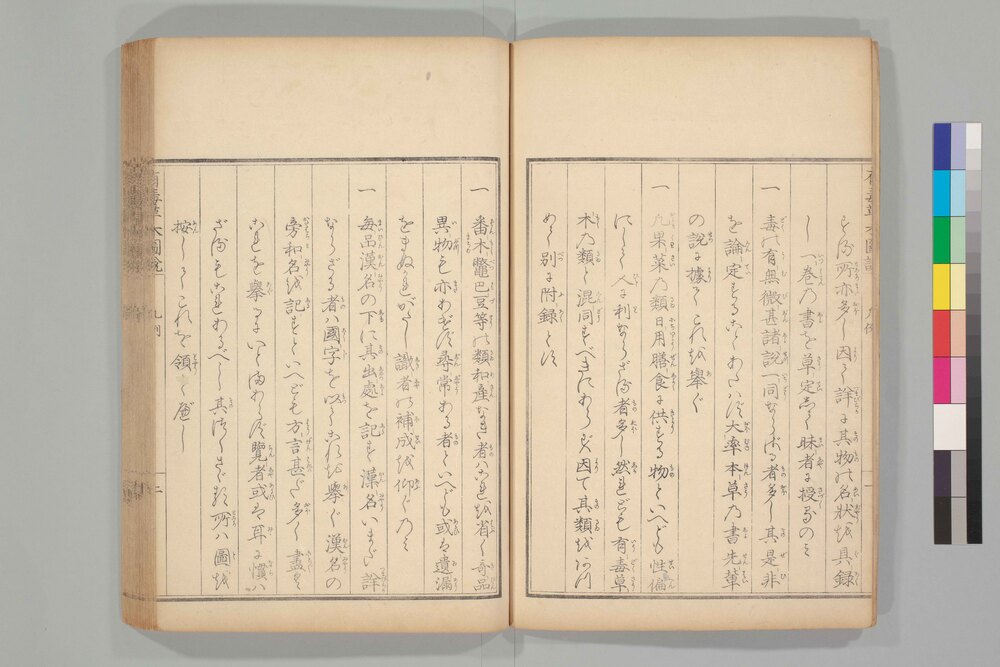 する所亦多し因りて詳に其物の名状を具録
し一巻の書を草定して昧者に授るのミ
一 毒の有無微甚諸説一同ならざる者多し其是非
を論定することあたハず大率本草の書先輩
の説に據てこれを擧ぐ
一 凡果菜の類日用膳食に供する物といへども性偏
にして人に利ならざる者多し然れども有毒草
木の類と混同すべきにあらず因て其類をあつ
めて別に附録とす
一 番木鼈巴豆等の類和産なき者ハこれを省く奇品
異物も亦あげず尋常ある者といへども或は遺漏
をまぬれがたし識者の補成を仰ぐのミ
一 毎品漢名の下に其出處を記す漢名いまだ詳
ならざる者ハ國字を以てこれを擧ぐ漢名の
旁和名を記すといへども方言甚だ多く盡く
これを擧るにいとまあらず覽者或は耳に慣ハ
ざるもこれあるべし其
按してこれを領すべし
有毒草木圖説 凡例 二